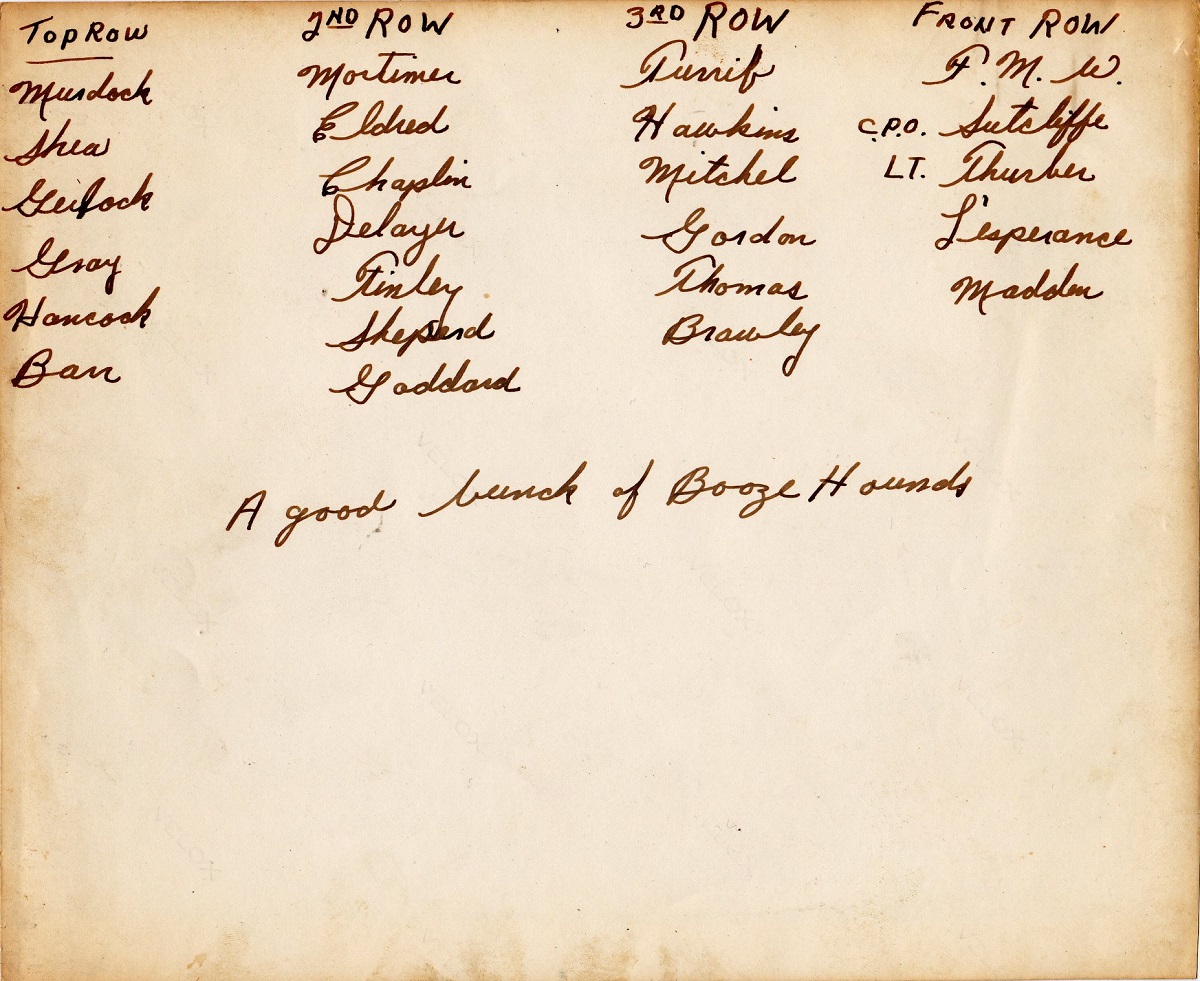 Top Row
Murdock
Shea
Gray
Hancock
Barr
2ND ROW
Mortimer
Eldred
Chaplin
Delayer
Finley
Sheperd
Goddard
3RD ROW
Turrif
Hawkins
Mitchel
Gordon
Thomas
Brawley
FRONT ROW
F. M. W.
C.P.O. Sutcliffe
LT. Thurber
L'esperance
Madden
A good bunch of Booze Hounds